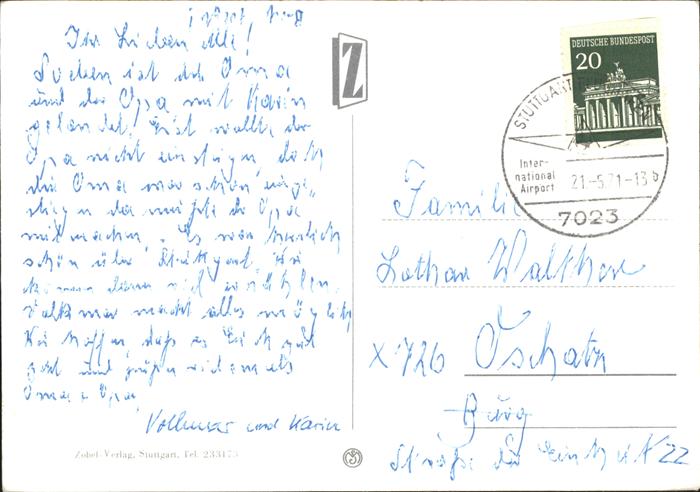 Ihr Lieben alle!
Soeben ist die Oma
und der Opa mit Karin
gelandet. Erst wollte der
Opa nicht einsteigen, doch
die Oma war schon einge-
stiegen da mußte der Opa
mitmachen. Es war herrlich
schön über Stuttgart, wir
können dann viel erzählen.
Volkmar macht alles möglich
Wir hoffen, daß es Euch gut
geht und grüßen
Oma u Opa
Volkmar und Karin
Zobel-Verlag, Stuttgart, Tel. 233173
Z
DEUTSCHE BUNDESPOST
20
STUTTGART
Inter-
national
Airport
21-5.71-13
7023
Familie
Lothar Walther
X 726 Oschatz
Straße der Einheit N 22